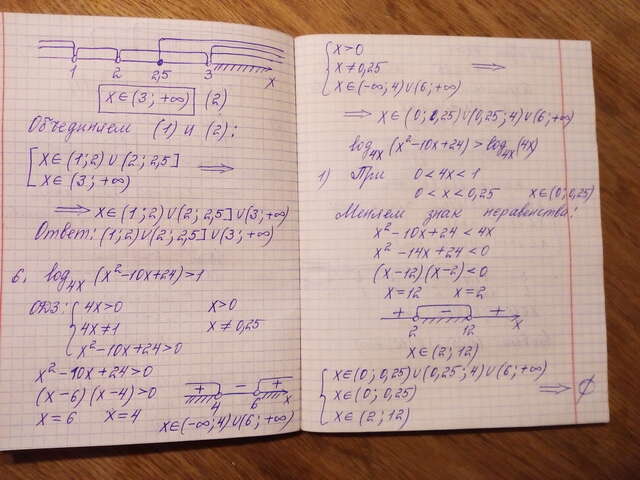 1 2 2,5 3 x
x∈(3; +∞) (2)
Объединяем (1) и (2):
x∈(1;2)∪(2; 2,5] ⟹
x∈(3; +∞)
⟹ x∈(1;2)∪(2; 2,5]∪(3; +∞)
Ответ: (1;2)∪(2; 2,5]∪(3; +∞)
6. log₄ₓ (x²-10x+24)>1
ОДЗ: 4x>0 x>0
4x≠1 x≠0,25
x²-10x+24>0
x²-10x+24>0
(x-6)(x-4)>0 + - +
x=6 x=4 4 6 x
x∈(-∞; 4)∪(6; +∞)
x>0
x≠0,25 ⟹
x∈(-∞; 4)∪(6; +∞)
⟹ x∈(0; 0,25)∪(0,25; 4)∪(6; +∞)
log₄ₓ (x²-10x+24)>log₄ₓ(4x)
1) При 0<4x<1
0<x<0,25 x∈(0; 0,25)
Меняем знак неравенства:
x²-10x+24<4x
x²-14x+24<0
(x-12)(x-2)<0
x=12 x=2
+ - +
2 12 x
x∈(2; 12)
x∈(0; 0,25)∪(0,25; 4)∪(6; +∞)
x∈(0; 0,25) ⟹ ∅
x∈(2; 12)